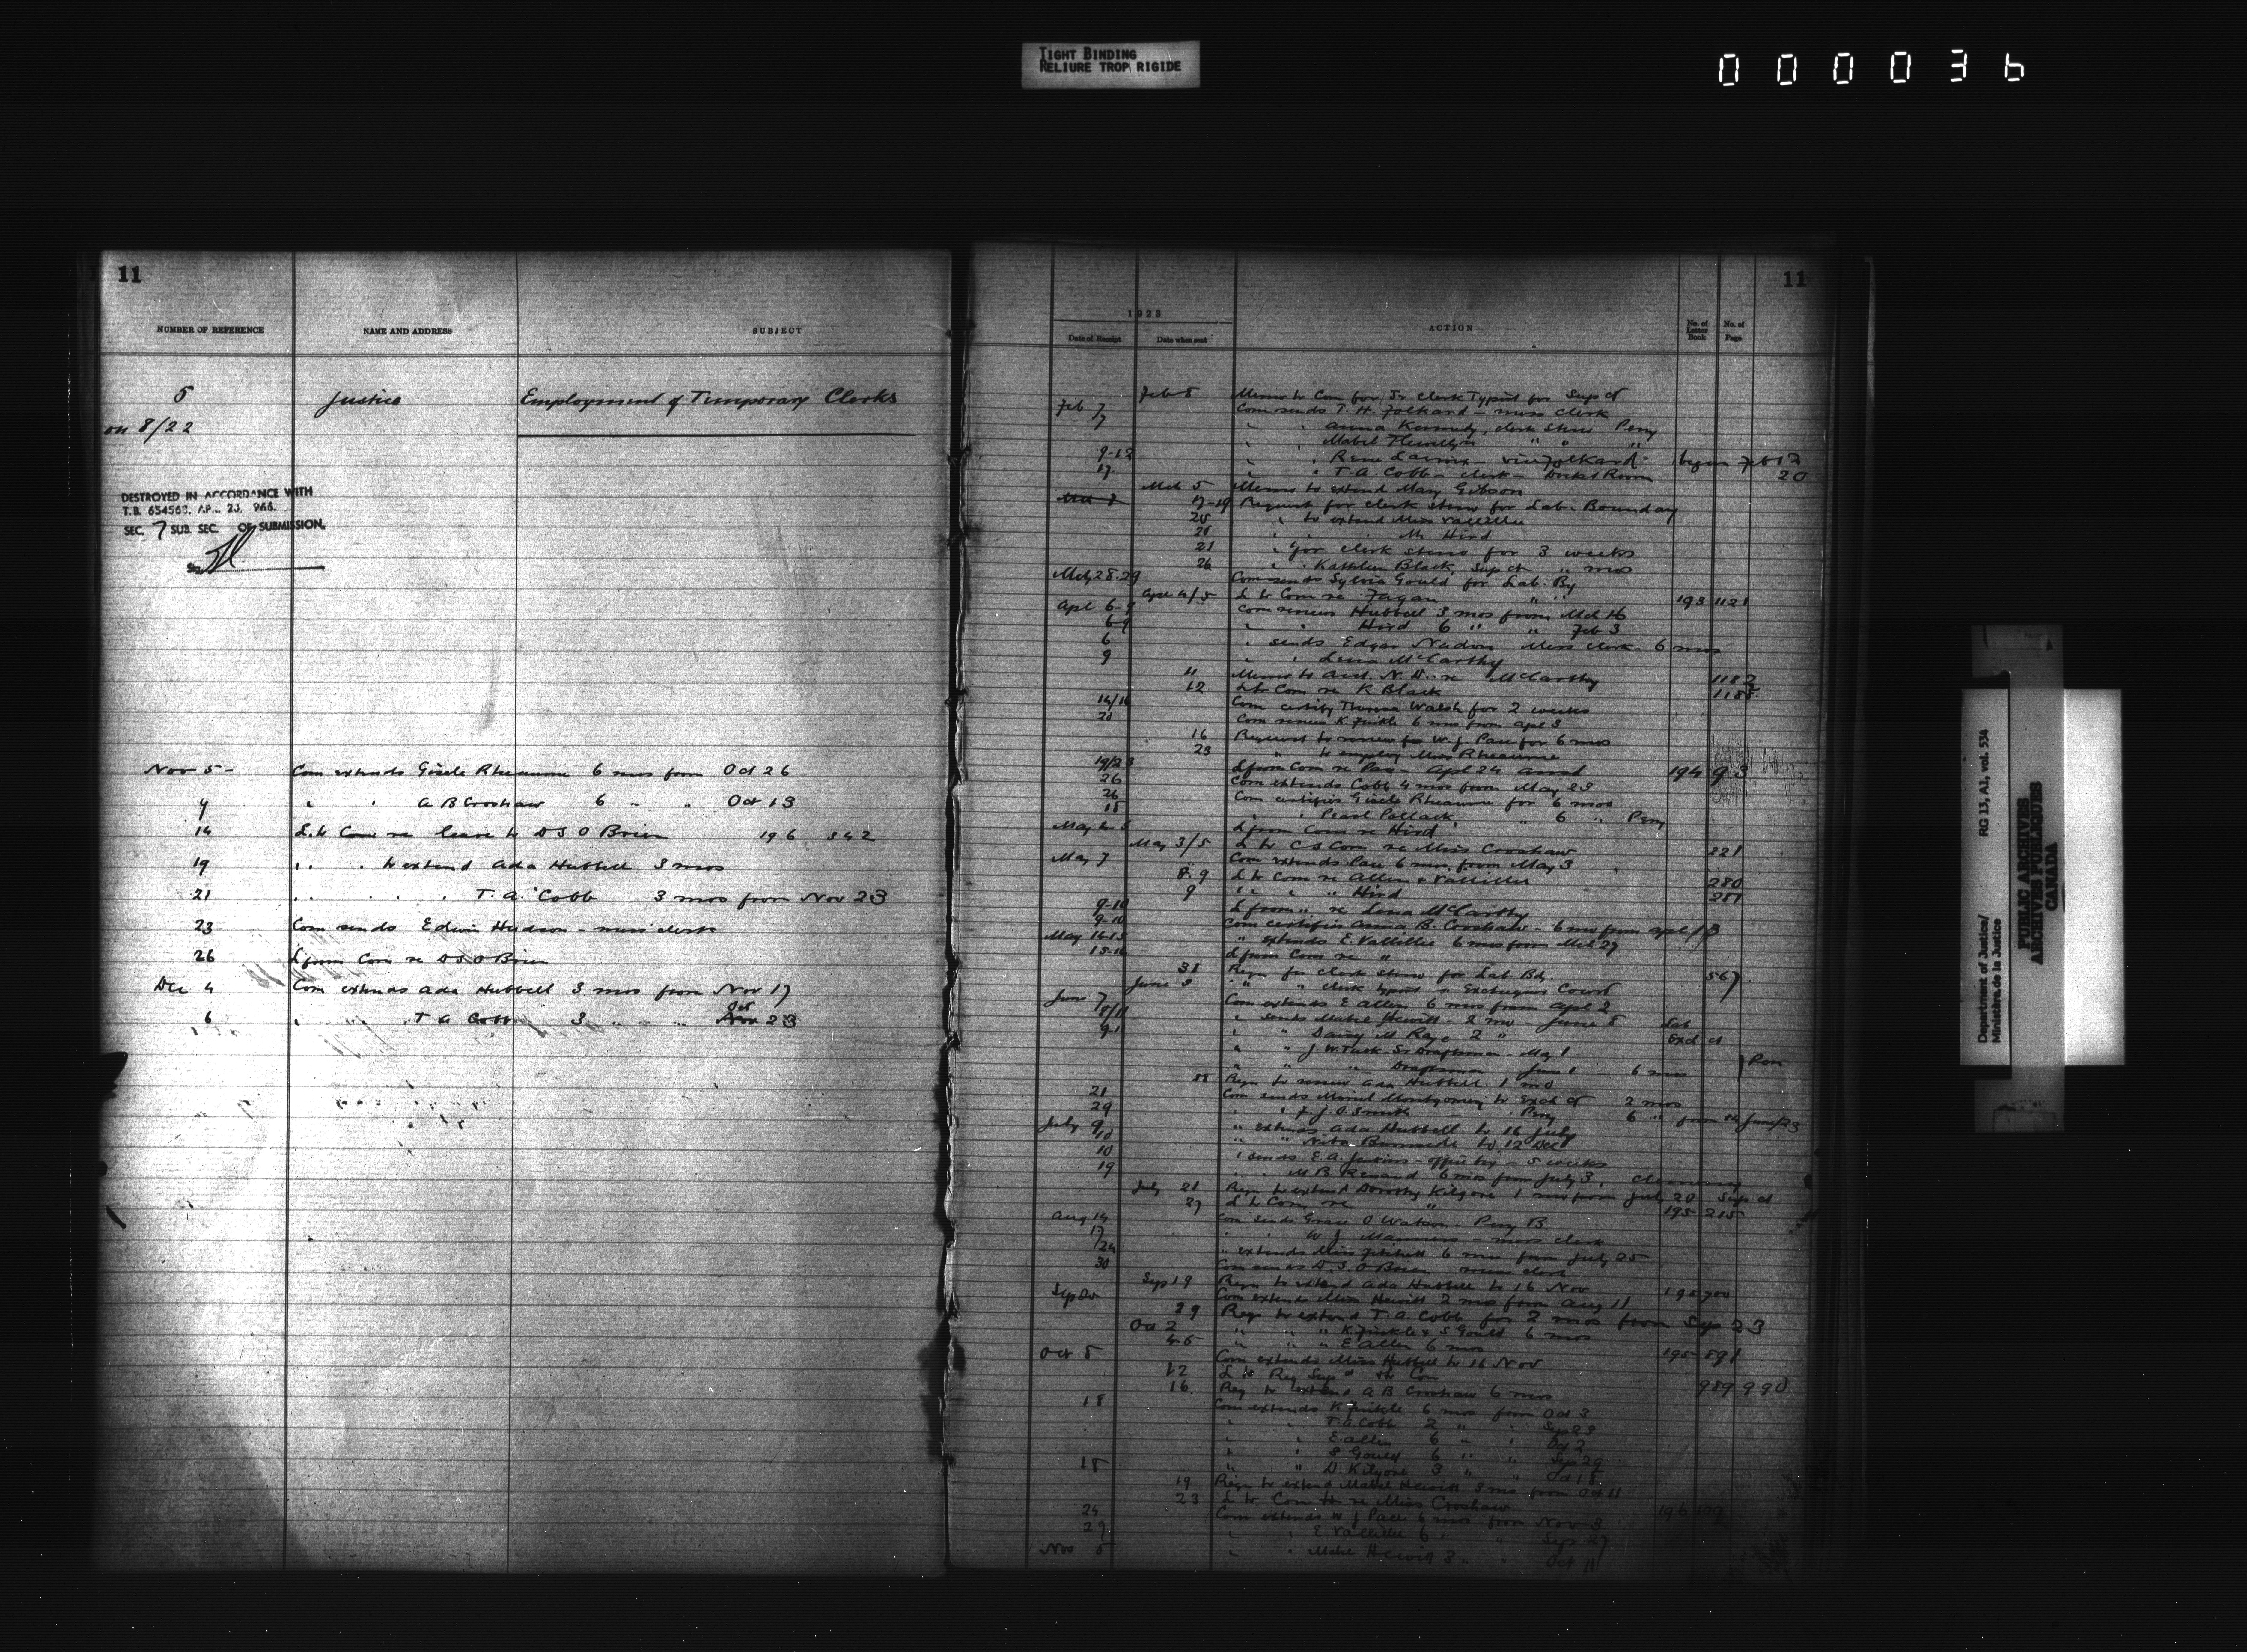 TIGHT BINDING
RELIURE TROP RIGIDE
000036
11
NUMBER OF REFERENCE NAME AND ADDRESS SUBJECT
5 Justice Employment of Temporary Clerks
on 8/22
DESTROYED IN ACCORDANCE WITH
T.B. 654563, AP.. 23, 966.
SEC. 7 SUB. SEC. OF SUBMISSION.
Nov 5- Com extends Gisele Rheaume 6 mos from Oct 26
9 " " A B Croshaw 6 " " Oct 13
14 L. to Com re leave to D S O Brien 196 342
19 " " to extend Ada Hubbell 3 mos
21 " " " " T. A. Cobb 3 mos from Nov 23
23 Com sends Edwin Hudson - mess clerk
26 L from Com re D S O Brien
Dec 4 Com extends Ada Hubbell 3 mos from Nov 17
6 " " T A Cobb 3 " " Nov 23
11
1923
Date of Receipt Date when sent ACTION No. of Letter Book No. of Page
Feb 5 Memo to Com for Jr Clerk Typist for Sup Ct
Feb 7 Com sends T. H. Folkard - mess clerk
7 " " Anna Kennedy, clerk steno Peny
" " Mabel Flewellyn " " "
9-12 " " began Feb 12
17 " " T. A. Cobb - clerk - Docket Room 20
Mch 5 Memo to extend Mary Gibson
17-19 Request for clerk steno for Lab. Boundary
20 " to extend Miss Vallillee
20 " " M Hird
21 " for clerk steno for 3 weeks
26 " " Kathleen Black, Sup Ct " mos
Mch 28-29 Com sends Sylvia Gould for Lab. By
Apl 4/5 L to Com re Fagan " " 193 1121
Apl 6-9 Com renews Hubbell 3 mos from Mch 16
6-9 " " Hird 6 " " Feb 3
6 " sends Edgar Nadon Mess clerk - 6 mos
9 " " Lena McCarthy
11 Memo to Acct. N. D. re McCarthy 1182
12 L to Com re K Black 1188
14/16 Com certify Theresa Walsh for 2 weeks
20 Com renews K Finkle 6 mos from Apl 3
16 Request to renew for W. J. Pace for 6 mos
23 " to employ Miss Rheaume
19/23 L from Com re Pace - Apl 24 194 93
26 Com extends Cobb 4 mos from May 23
26 Com certifies Gisele Rheaume for 6 mos
18 " " Pearl Pollack " 6 " Peny
May 4-5 L from Com re Hird
May 3/5 L to C S Com re Miss Croshaw 221
May 7 Com extends Pace 6 mos. from May 3
8-9 L to Com re Allen & Vallillee 280
9 " " " " Hird 281
9-10 L from " re Lena McCarthy
9-10 Com certifies Anna B. Croshaw - 6 mo from Apl 13
May 14-15 " extends E. Vallillee 6 mos from Mch 27
15-16 L from Com re "
31 Reqn for clerk steno for Lab. Bdy 567
June 2 " " clerk typist " Exchequer Court
June 7 Com extends E Allen 6 mos from Apl 2
8/11 " sends Mabel Hewitt - 2 mo - June 8 Lab
9-1 " " Daisy M Raye 2 " Exch ct
" " J. W. Tuck Sr Draftsman - May 1
" " " Draftsman June 1 6 mos } Pen
18 Reqn to renew Ada Hubbell 1 mo
21 Com sends Muriel Montgomery to Exch Ct 2 mos
29 " " F. J. O. Smith Peny 6 " from 14 June/23
July 9 " extends Ada Hubbell to 16 July
10 " " Neta Burnside to 12 Dec
10 " sends E. A. Jenkins - office boy - 5 weeks
19 " " M B Renaud 6 mos from July 3,
July 21 Reqn to extend Dorothy Kilgore 1 mo from July 20 Sup ct
27 L to Com re " 195 215
Aug 14 Com sends Grace O Watson - Peny B
17 " " W J Manners - mess clerk
/24 " extends Miss Mitchell 6 mos from July 25
30 Com sends D. S. O Brien mess clerk
Sep 19 Reqn to extend Ada Hubbell to 16 Nov 195 700
Sep 20 Com extends Miss Hewitt 2 mos from Aug 11
29 Reqn to extend T. A. Cobb for 2 mos from Sep 23
Oct 2 " " " K Finkle & S Gould 6 mos
4-5 " " " E Allen 6 mos 195 891
Oct 5 Com extends Miss Hubbell to 16 Nov
12 L to Reg Sup Ct & Com 989 990
16 Req to extend A B Croshaw 6 mos
18 Com extends K Finkle 6 mos from Oct 3
" " T. A. Cobb 2 " " Sep 23
" " E. Allen 6 " " Oct 2
" " S Gould 6 " " Sep 29
18 " " D. Kilgore 3 " " Oct 18
19 Reqn to extend Mabel Hewitt 3 mo from Oct 11
23 L to Com re Miss Croshaw 196 109
24 Com extends W J Pace 6 mos from Nov 3
29 " " E Vallillee 6 " " Sep 27
Nov 5 " " Mabel Hewitt 3 " " Oct 11
Department of Justice/
Ministère de la Justice
RG 13, A1, vol. 534
PUBLIC ARCHIVES
ARCHIVES PUBLIQUES
CANADA